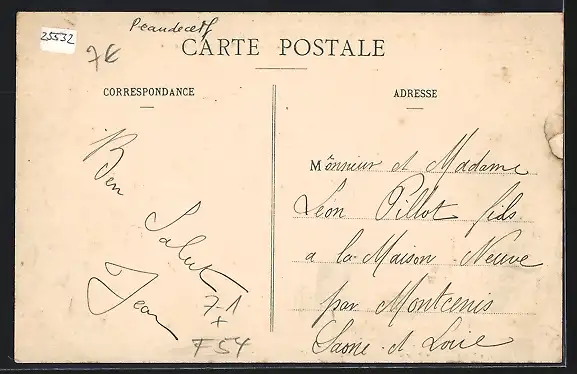 25532
7€
CARTE POSTALE
CORRESPONDANCE
Bon
Salut
Jean
7-1
+
F54
ADRESSE
Monsieur et Madame
Léon Pillot fils
a la Maison Neuve
par Montcenis
Saone et Loire